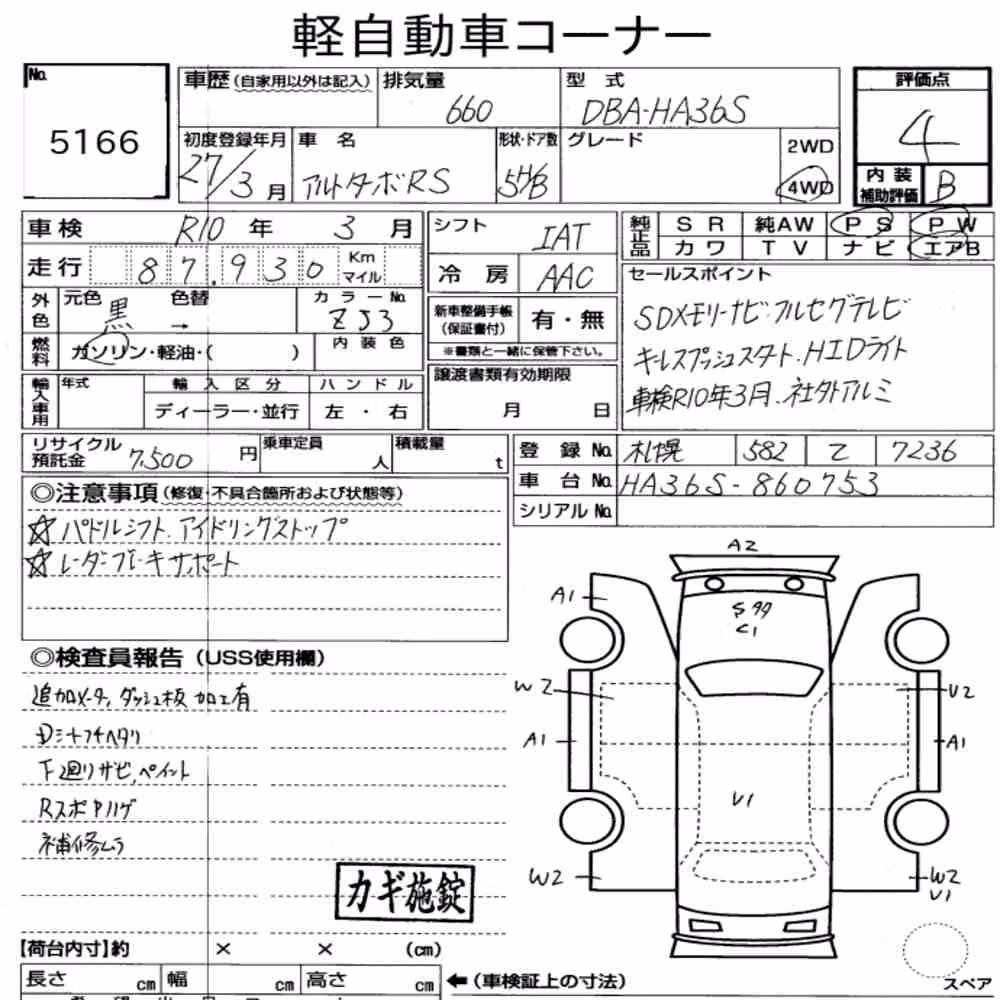 軽自動車コーナー
No. 5166
車歴(自家用以外は記入) 排気量 660 型式 DBA-HA36S 評価点 4
初度登録年月 27/3月 車名 アルトターボRS 形状・ドア数 5H/B グレード 2WD 4WD 内装補助評価 B
車検 R10年 3月 シフト IAT 純正品 SR 純AW PS PW
カワ TV ナビ エアB
走行 87,930 Km マイル 冷房 AAC
セールスポイント
外色 元色 黒 色替 → カラーNo. ZJ3 新車整備手帳(保証書付) 有・無
SDメモリーナビ・フルセグテレビ
燃料 ガソリン・軽油・( ) 内装色 ※書類と一緒に保管下さい。
キーレスプッシュスタート、HIDライト
輸入車用 年式 輸入区分 ハンドル 譲渡書類有効期限
ディーラー・並行 左・右 月 日
車検R10年3月、社外アルミ
リサイクル預託金 7,500円 乗車定員 人 積載量 t
登録No. 札幌 582 乙 7236
車台No. HA36S-860753
シリアルNo.
◎注意事項(修復・不具合箇所および状態等)
☆パドルシフト、アイドリングストップ
☆レーダーブレーキサポート
◎検査員報告(USS使用欄)
追加メータ、ダッシュ板加工有
Dシートフチヘタリ
下廻りサビ、ペイント
補修ムラ
カギ施錠
A2
A1
C1
W2 U2
A1 A1
U1
W2 W2
U1
スペア
【荷台内寸】約 × × (cm)
長さ cm 幅 cm 高さ cm ←(車検証上の寸法)